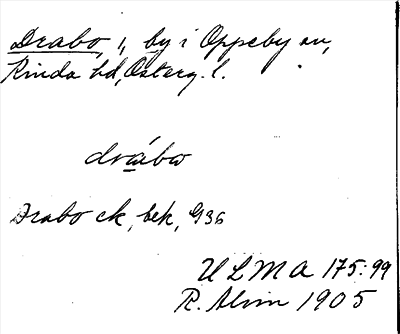 Drabo, 1, by i Oppeby sn,
Kinda hd, Österg. l.
drabo
Drabo ek, bek, G36
ULMA 175:99
R. Alvin 1905